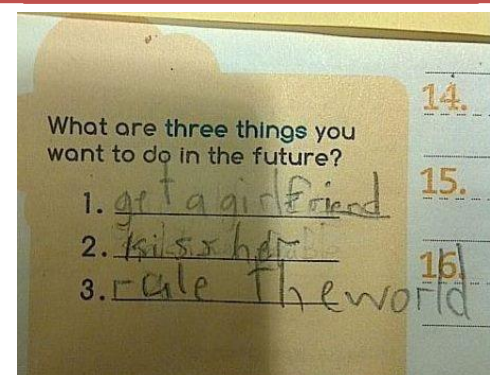 What are three things you
want to do in the future?
1. get a girlfriend
2. kissx her
3. rule the world
14.
15.
16.